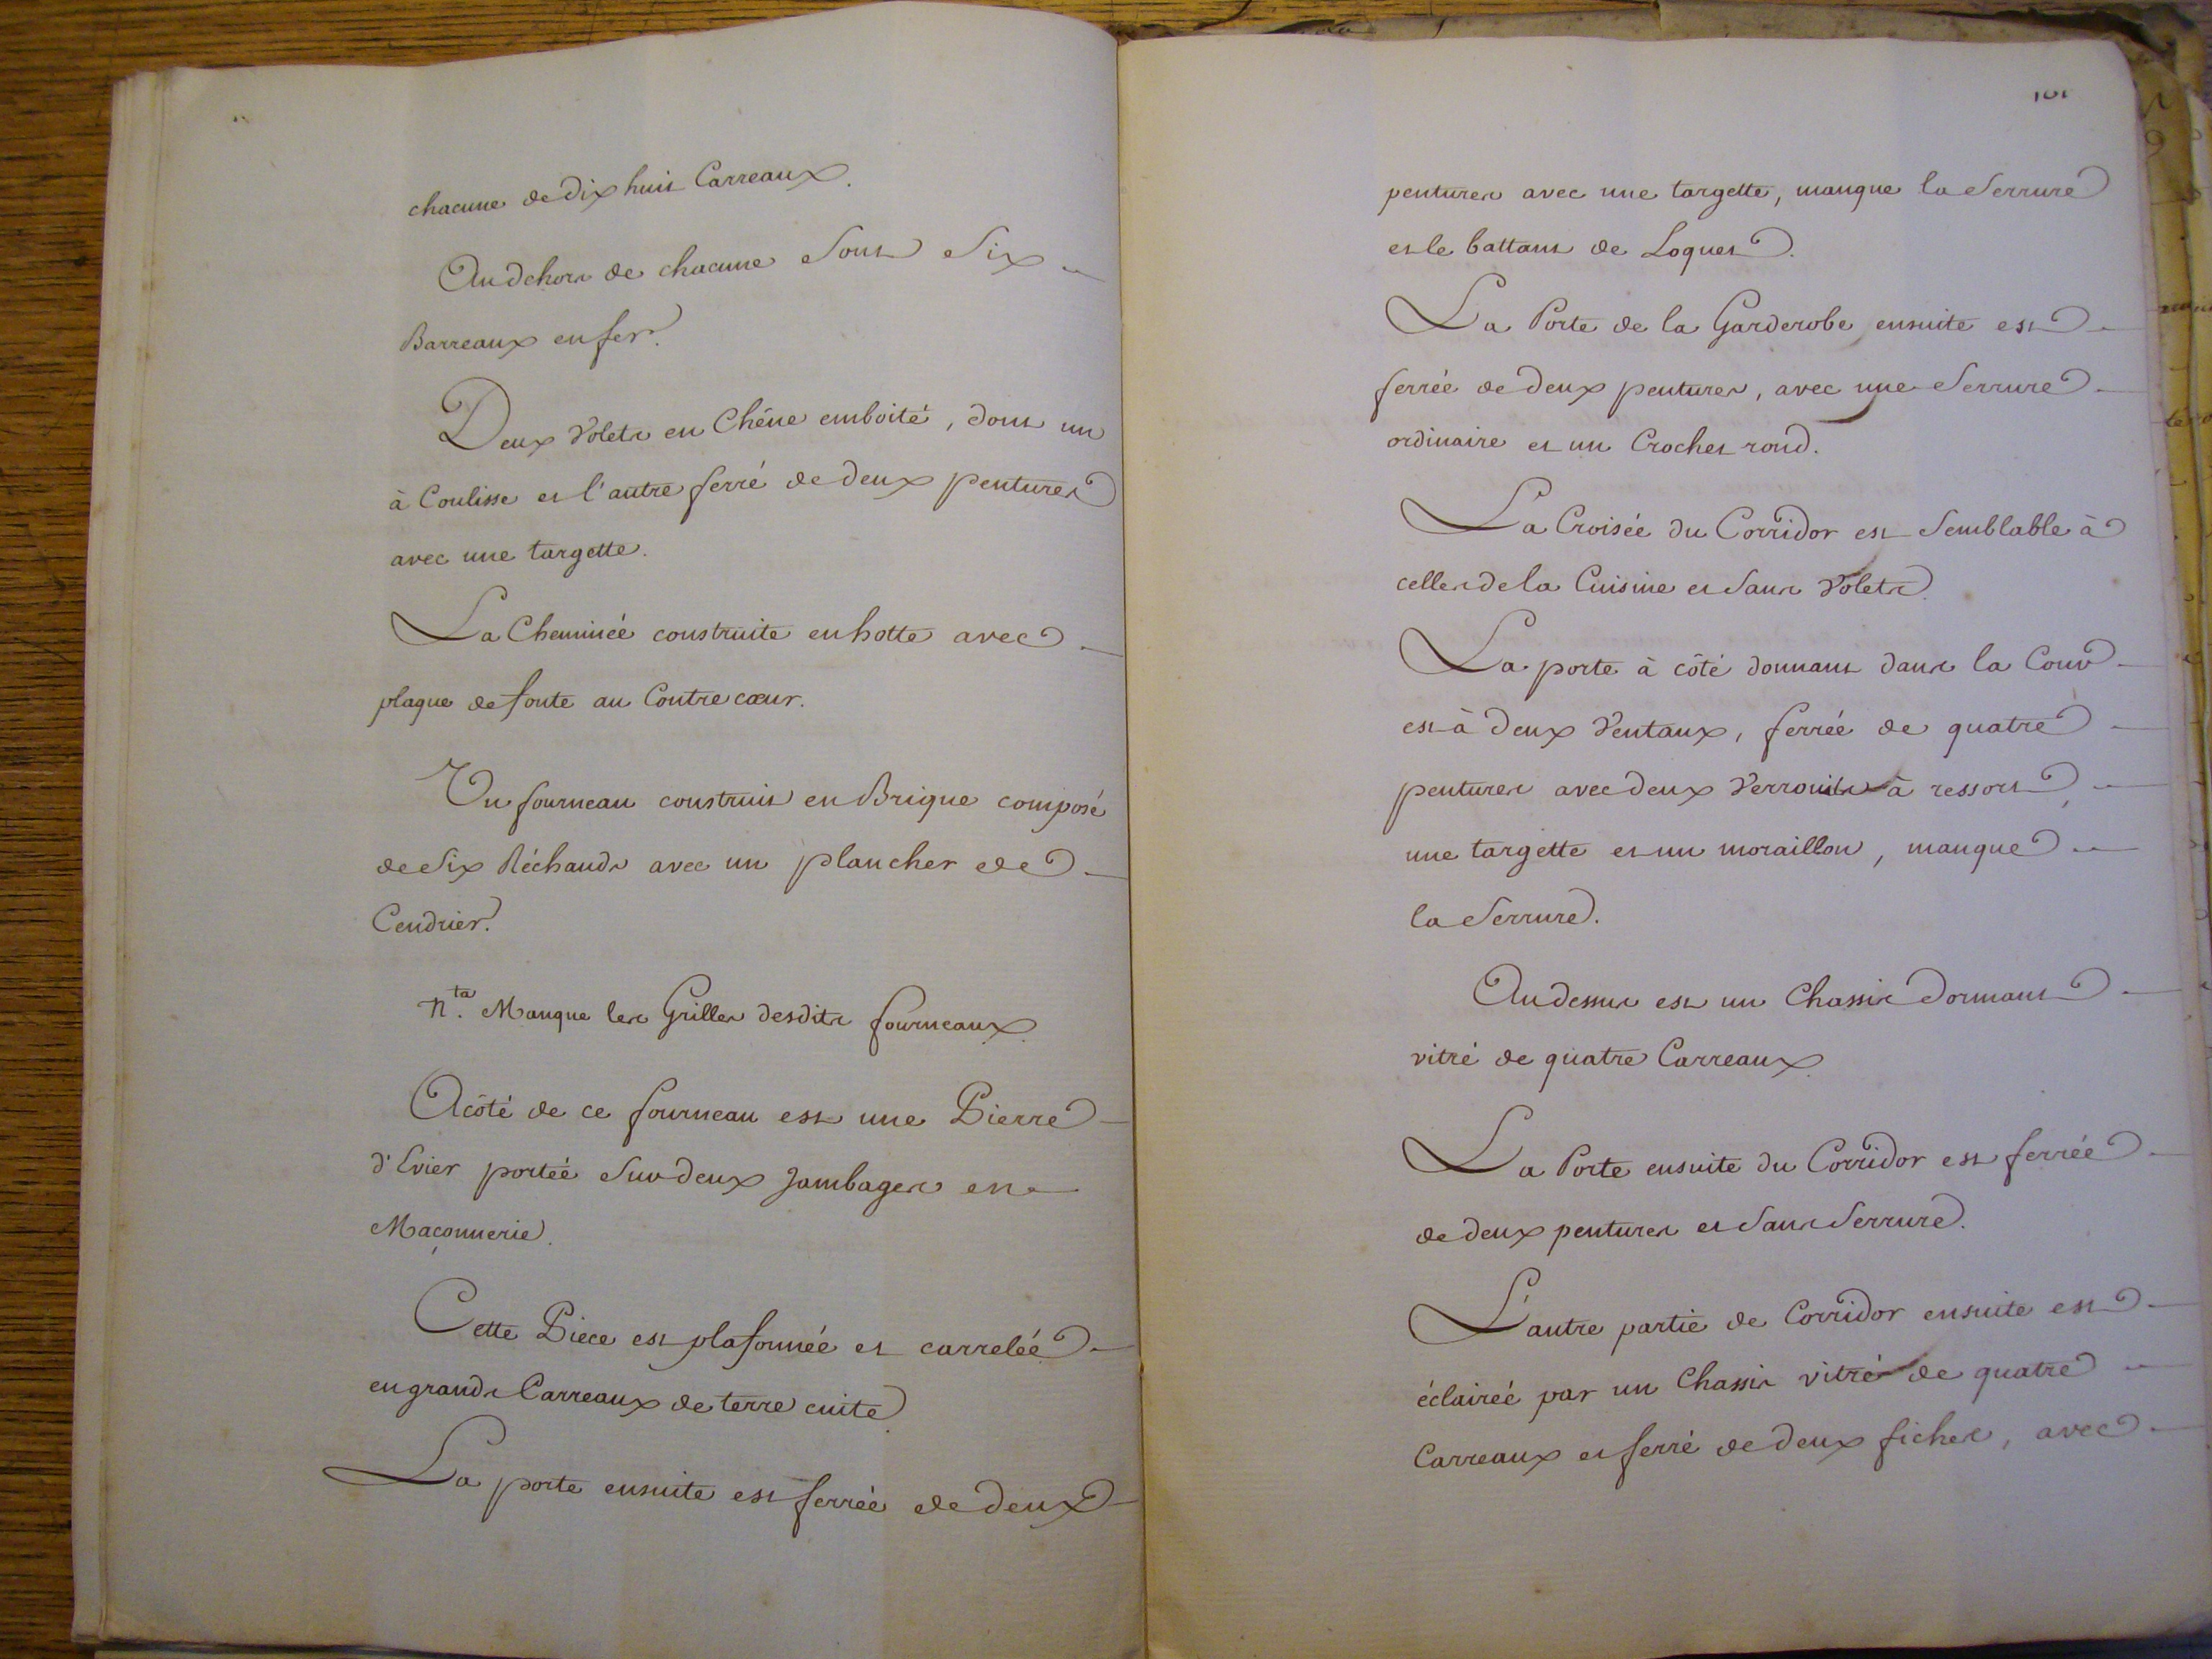 chacune de dix huit Carreaux.
Au dehors de chacune Sont Six
Barreaux en fer.
Deux Volets en Chêne emboité, dont un
à Coulisse et l'autre ferré de deux pentures
avec une targette.
La Cheminée construite en hotte avec
plaque de fonte au Contre cœur.
Un fourneau construit en Brique composé
de Six Réchauds avec un plancher de
Cendrier.
N.ta Manque les Grilles desdits fourneaux.
A côté de ce fourneau est une Pierre
d'Evier portée Sur deux Jambages en
Maçonnerie.
Cette Piece est plafonnée et carrelée
en grands Carreaux de terre cuite.
La porte ensuite est ferrée de deux
101
pentures avec une targette, manque la Serrure
et le battant de Loquet.
La Porte de la Garderobe ensuite est
ferrée de deux pentures, avec une Serrure
ordinaire et un Crochet rond.
La Croisée du Corridor est Semblable à
celles de la Cuisine et Sans Volets.
La porte à côté donnant dans la Cour
est à deux Ventaux, ferrée de quatre
pentures avec deux Verrouils à ressort,
une targette et un moraillon, manque
la Serrure.
Au dessus est un Chassis dormant
vitré de quatre Carreaux.
La Porte ensuite du Corridor est ferrée
de deux pentures et Sans Serrure.
L'autre partie de Corridor ensuite est
éclairée par un Chassis vitré de quatre
Carreaux et ferré de deux fiches, avec